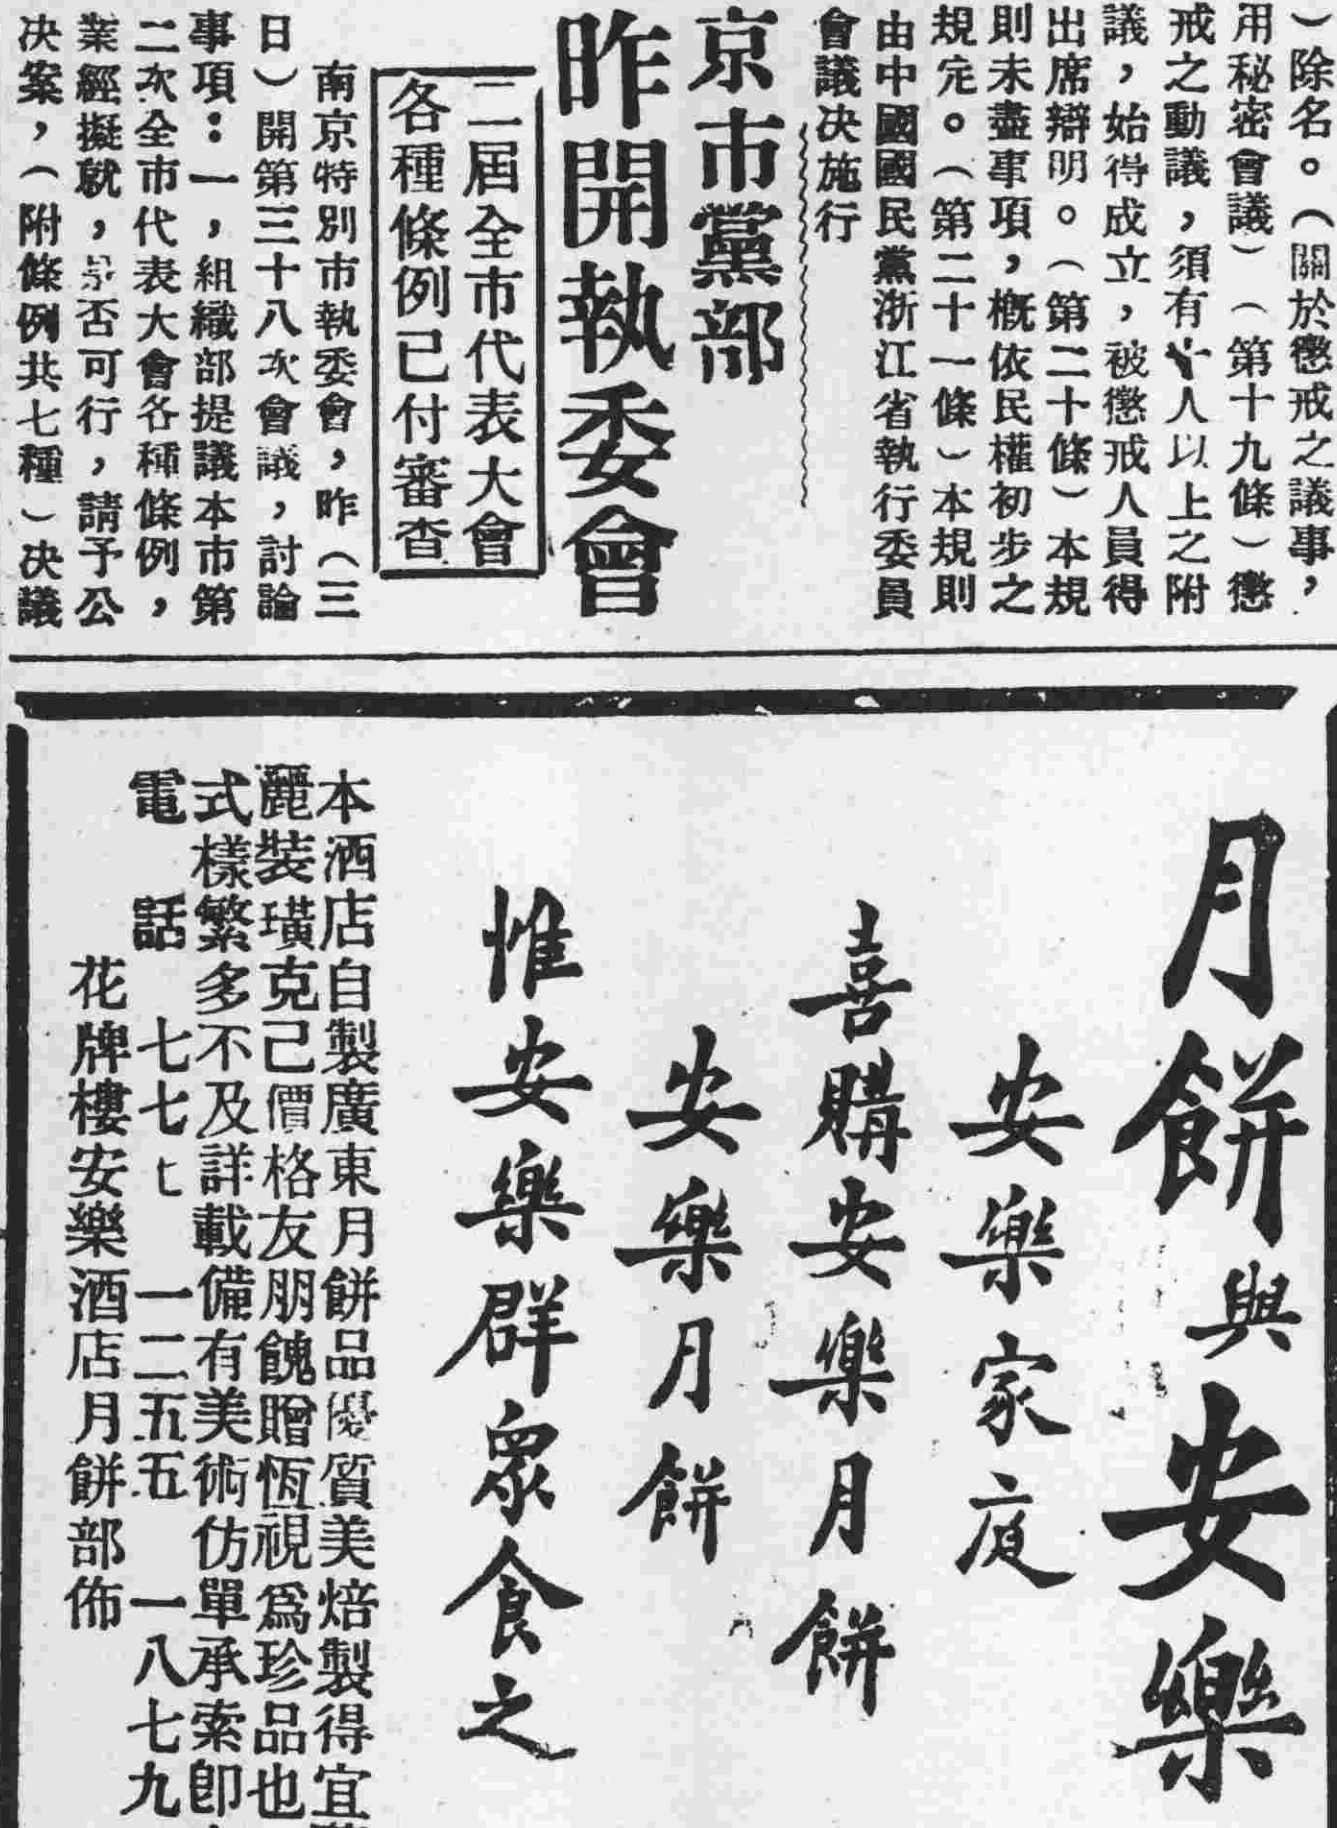 ）除名。（關於懲戒之議事，
用秘密會議）（第十九條）懲
戒之動議，須有 人以上之附
議，始得成立，被懲戒人員得
出席辯明。（第二十條）本規
則未盡事項，概依民權初步之
規定。（第二十一條）本規則
由中國國民黨浙江省執行委員
會議决施行
京市黨部
昨開執委會
二屆全市代表大會
各種條例已付審查
南京特別市執委會，昨（三
日）開第三十八次會議，討論
事項：一，組織部提議本市第
二次全市代表大會各種條例，
業經擬就，是否可行，請予公
决案，（附條例共七種）决議
月餅與安樂
安樂家庭
喜購安樂月餅
安樂月餅
惟安樂群眾食之
本酒店自製廣東月餅品優質美焙製得宜
麗裝璜克己價格友朋餽贈恆視爲珍品也
式樣繁多不及詳載備有美術仿單承索即
電話 七七七 一二五五 一八七九
花牌樓安樂酒店月餅部佈